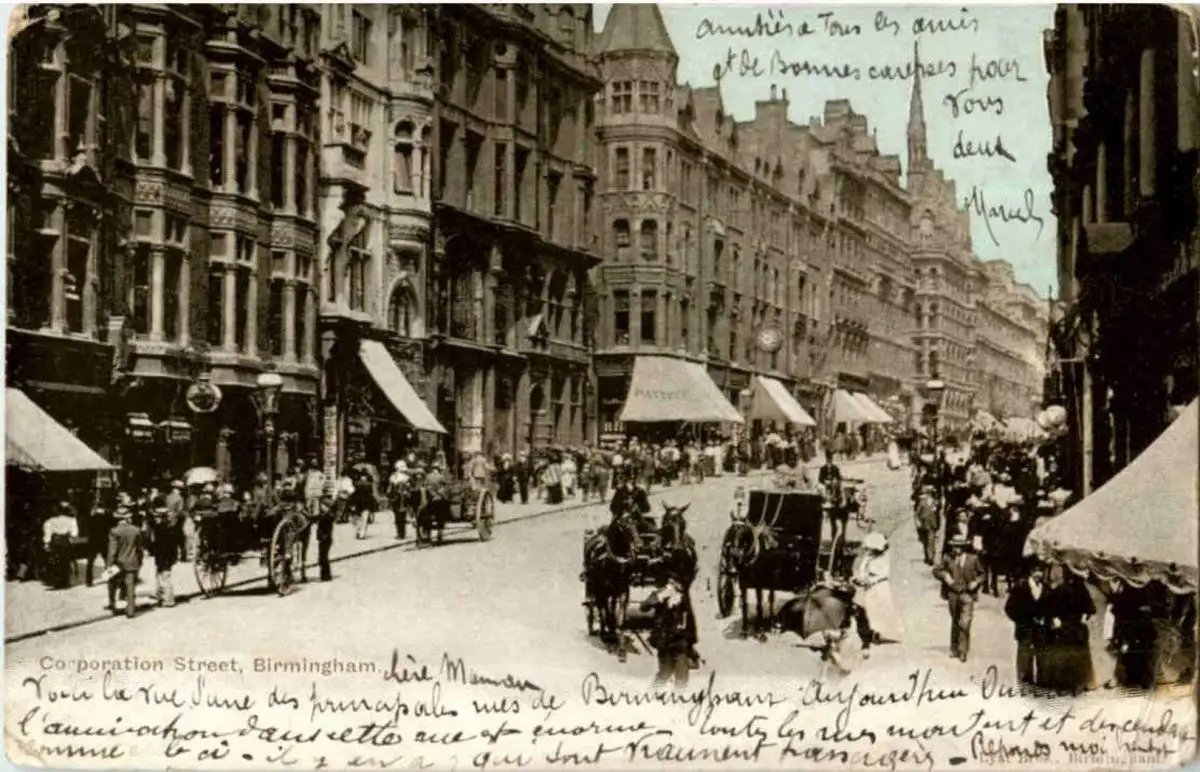 amitiés a Tous les amis
et de Bonnes caresses pour
Vous
deux
Marcel
PATTISON
Corporation Street, Birmingham.
chère Maman
Voici la vue d'une des principales rues de Birmingham Aujourd'hui
l'animation dans cette rue est énorme - toutes les rues montent et descendent
comme le ci - il y en a qui sont vraiment
Réponds moi
Birmingham